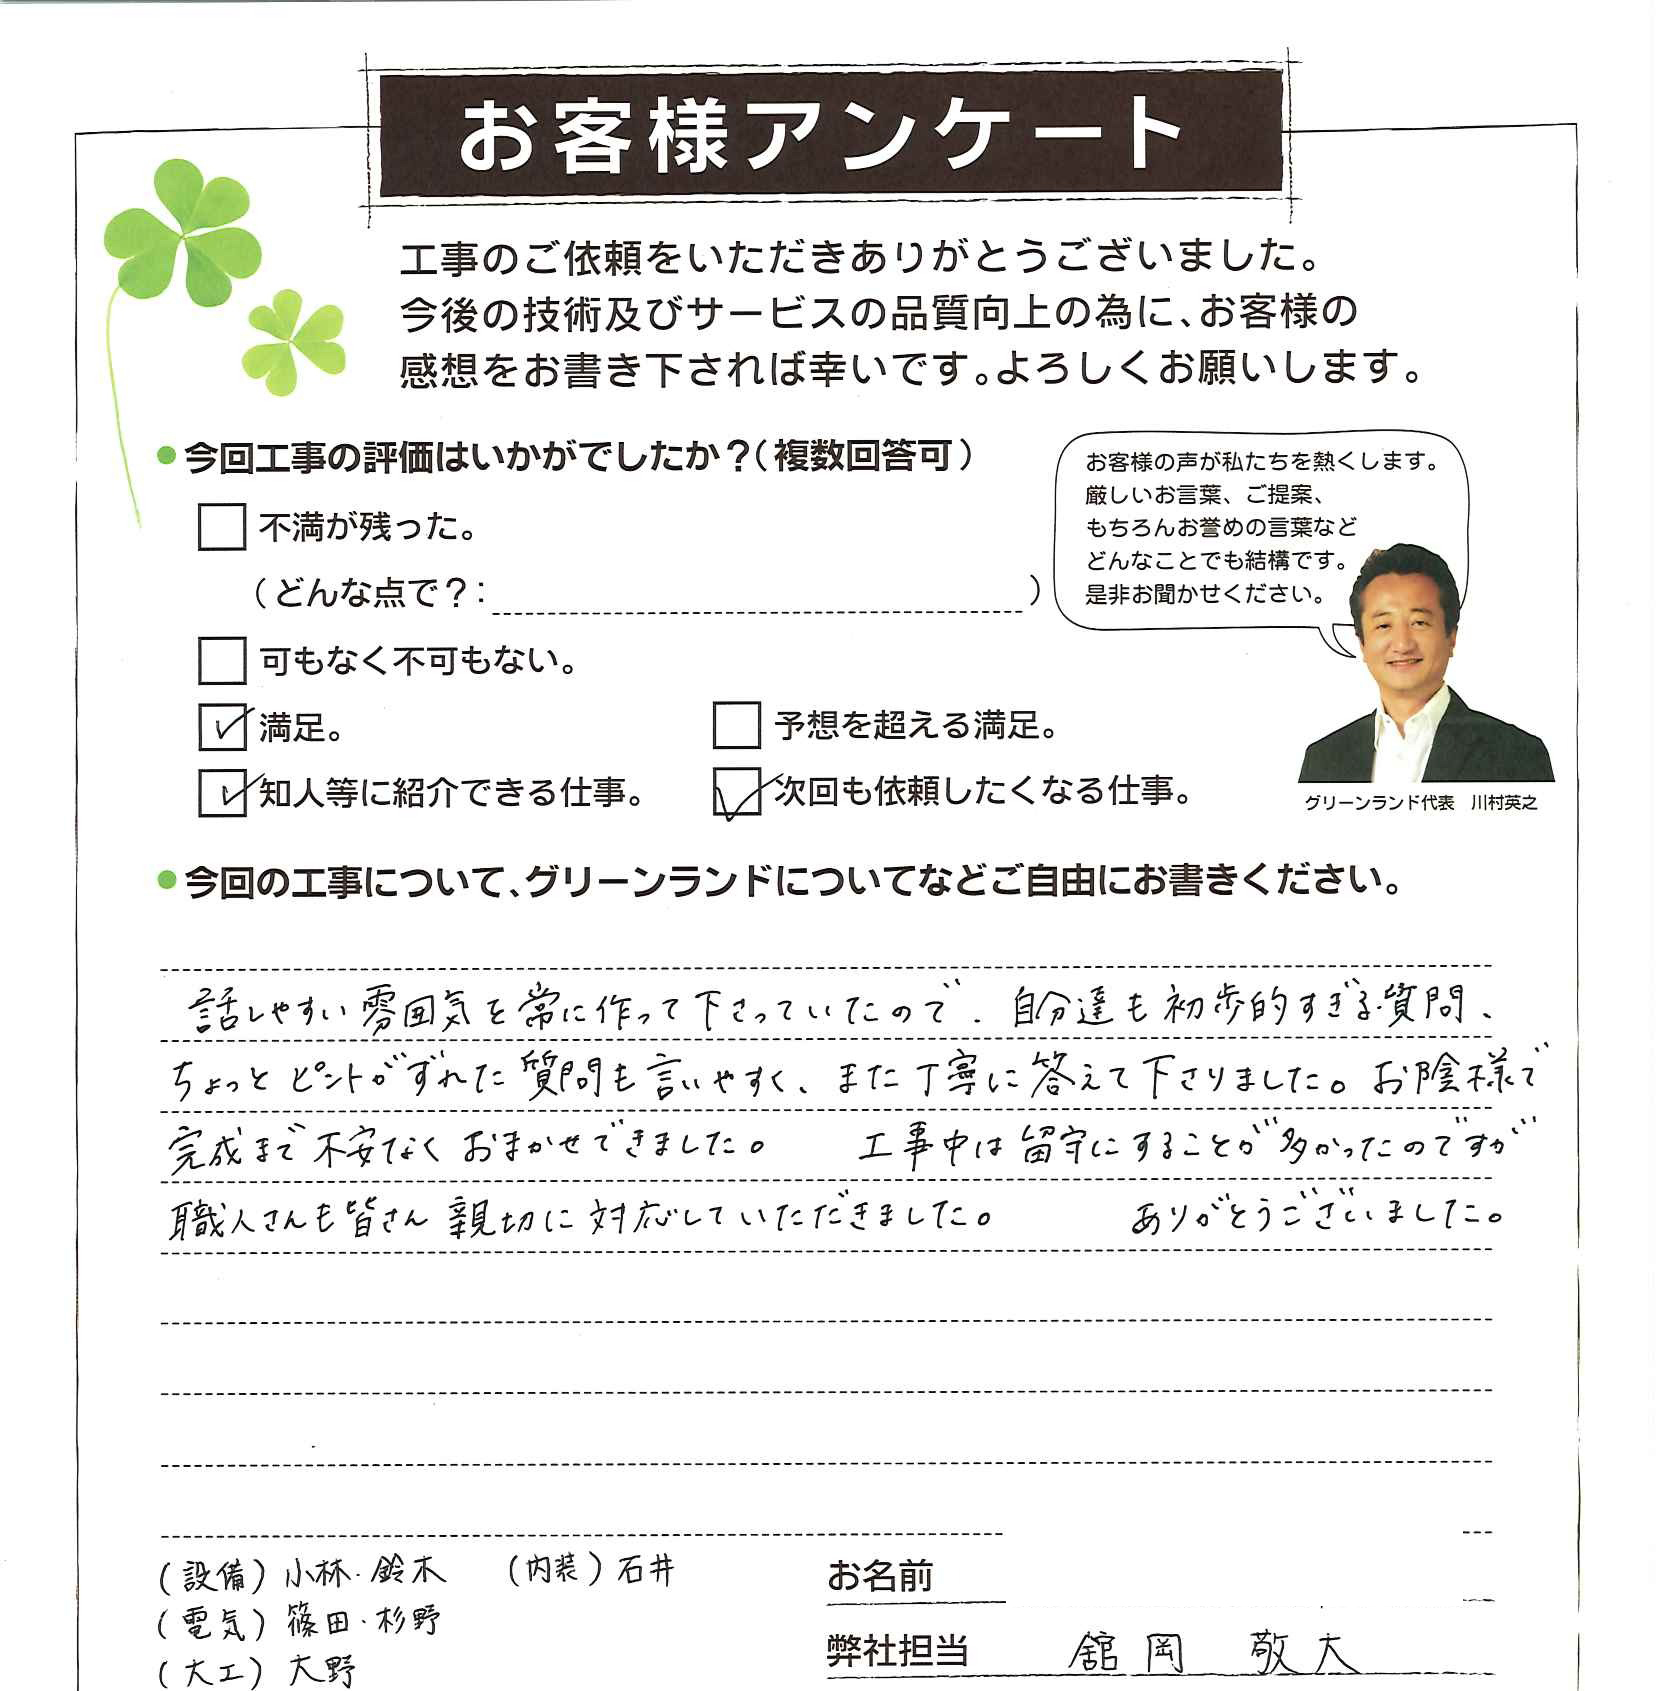 お客様アンケート
工事のご依頼をいただきありがとうございました。
今後の技術及びサービスの品質向上の為に、お客様の
感想をお書き下されば幸いです。よろしくお願いします。
●今回工事の評価はいかがでしたか？（複数回答可）
不満が残った。
（どんな点で？： ）
可もなく不可もない。
満足。
予想を超える満足。
知人等に紹介できる仕事。
次回も依頼したくなる仕事。
お客様の声が私たちを熱くします。
厳しいお言葉、ご提案、
もちろんお誉めの言葉など
どんなことでも結構です。
是非お聞かせください。
グリーンランド代表　川村英之
●今回の工事について、グリーンランドについてなどご自由にお書きください。
話しやすい雰囲気を常に作って下さっていたので、自分達も初歩的すぎる質問、
ちょっとピントがずれた質問も言いやすく、また丁寧に答えて下さりました。お陰様で
完成まで不安なくおまかせできました。　工事中は留守にすることが多かったのですが
職人さんも皆さん親切に対応していただきました。　ありがとうございました。
（設備）小林・鈴木　（内装）石井
（電気）篠田・杉野
（大工）大野
お名前
弊社担当　舘岡　敬大